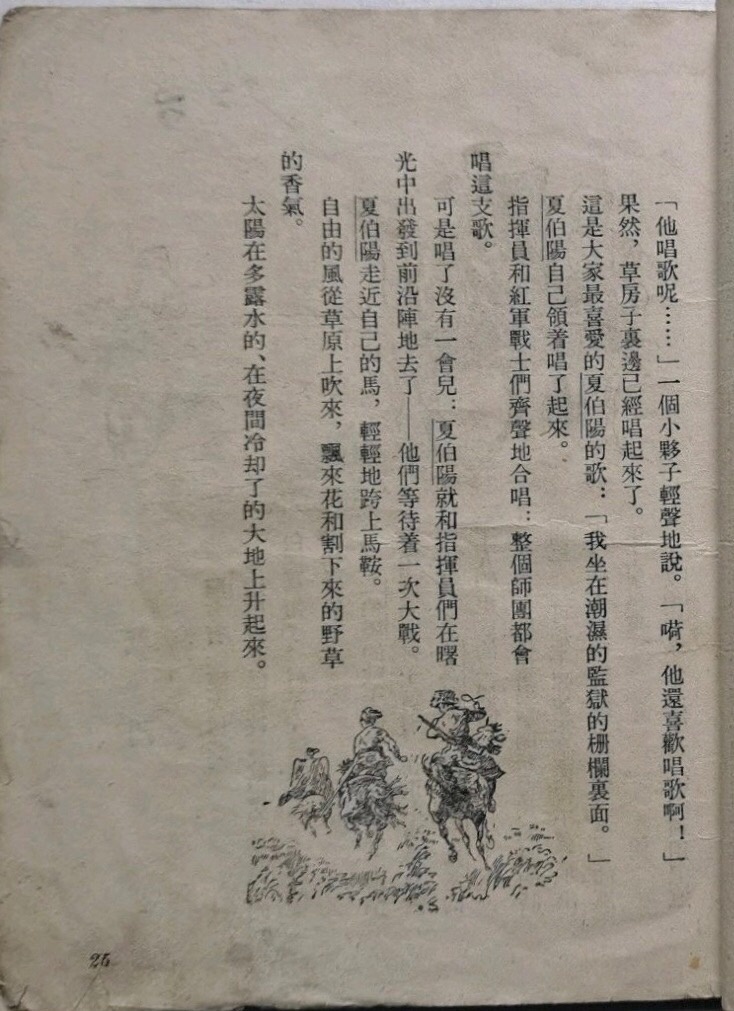 「他唱歌呢……」一個小夥子輕聲地說。「嗬，他還喜歡唱歌啊！」
果然，草房子裏邊已經唱起來了。
這是大家最喜愛的夏伯陽的歌：「我坐在潮濕的監獄的柵欄裏面。」
夏伯陽自己領着唱了起來。
指揮員和紅軍戰士們齊聲地合唱：整個師團都會
唱這支歌。
可是唱了沒有一會兒：夏伯陽就和指揮員們在曙
光中出發到前沿陣地去了——他們等待着一次大戰。
夏伯陽走近自己的馬，輕輕地跨上馬鞍。
自由的風從草原上吹來，飄來花和割下來的野草
的香氣。
太陽在多露水的、在夜間冷却了的大地上升起來。
25